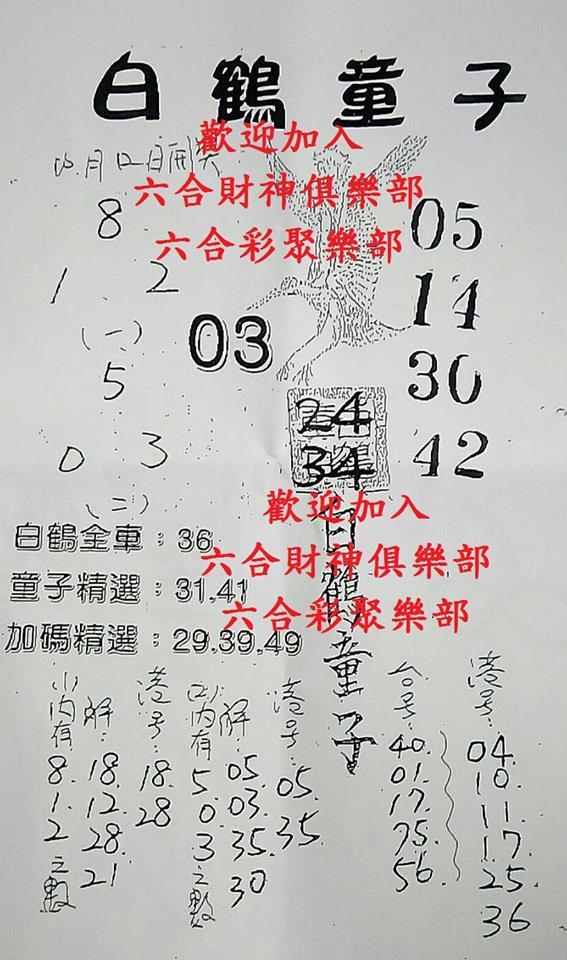 白鶴童子
歡迎加入
六合財神俱樂部
六合彩聚樂部
8
1 2
(一)
5
0 3
(二)
03
05
14
30
42
24
34
歡迎加入
六合財神俱樂部
六合彩聚樂部
白鶴全車：36
童子精選：31,41
加碼精選：29,39,49
白鶴童子
內有8.1.2之數
解：18.12.28.21
港号：18.28
(二)內有5.0.3之數
解：05.03.35.30
港号：05.35
台号：40.01.17.75.56
港号：04.10.11.17.25.36